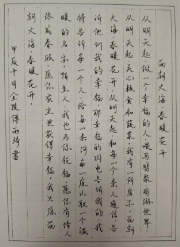 面朝大海、春暖花开
从明天起做一个幸福的人喂马劈柴周游世界
从明天起关心粮食和蔬菜我有一所房子面朝
大海春暖花开从明天起和每一个亲人通信告
诉他们我的幸福那幸福的闪电告诉我的我
将告诉每一个人给每一条河每一座山取一个温
暖的名字陌生人我也为你祝福愿你有情人
终成眷属愿你在尘世获得幸福我只愿面
朝大海、春暖花开
甲辰十月金陵